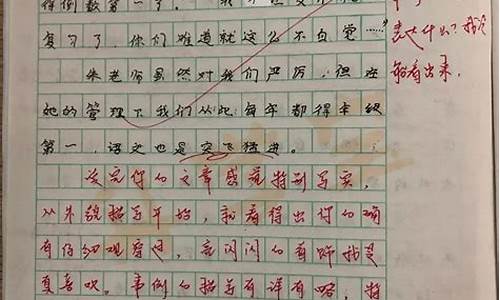 得倒数第一了。
复习了，你们难道就这么不自觉……"
朱老师虽然对我们严厉，但在
她的管理下我们从此每年都得年级
第一，语文也是突飞猛进。
读完你的文章感觉特别写实，
从外貌描写开始，就看得出你的确
有仔细观察过，亮闪闪的
真喜欢。事例的描写有详有略，
表达什么？我没
能看出来。